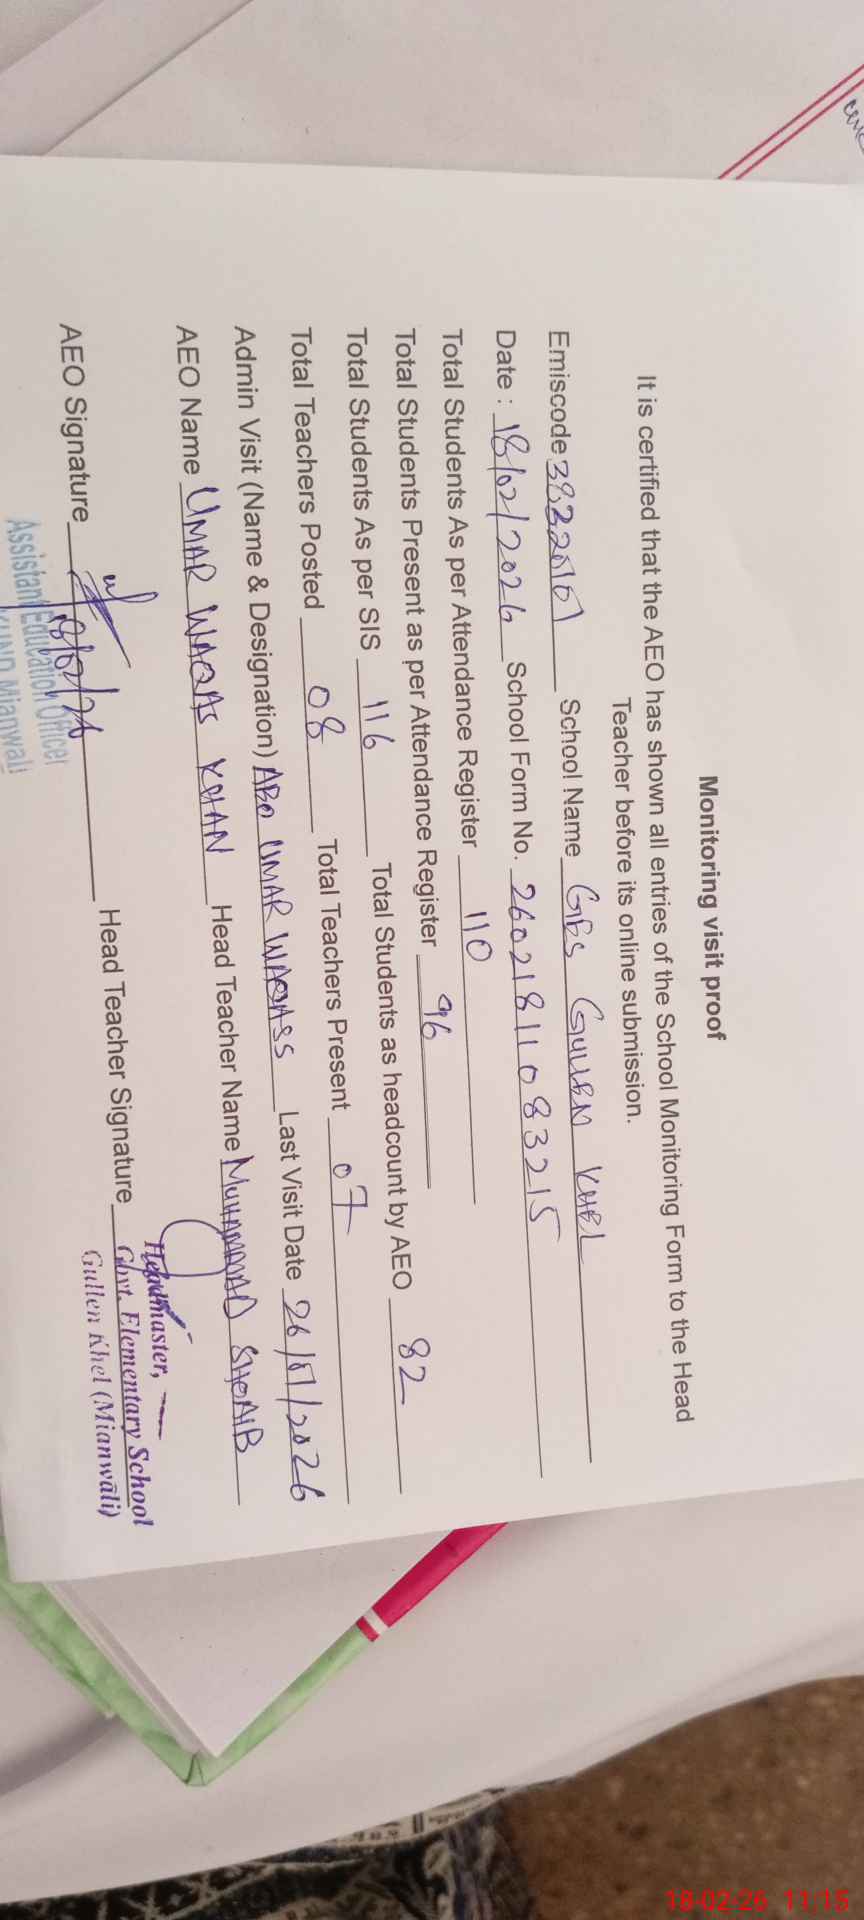 Monitoring visit proof
It is certified that the AEO has shown all entries of the School Monitoring Form to the Head
Teacher before its online submission.
Emiscode 38320101 School Name GES GULLEN KHEL
Date : 18/02/2026 School Form No. 26021811083215
Total Students As per Attendance Register 110
Total Students Present as per Attendance Register 96
Total Students As per SIS 116 Total Students as headcount by AEO 82
Total Teachers Posted 08 Total Teachers Present 07
Admin Visit (Name & Designation) AEO UMAR WAQASS Last Visit Date 26/01/2026
AEO Name UMAR WAQAS KHAN Head Teacher Name MUHAMMAD SHOAIB
AEO Signature 18/02/26 Head Teacher Signature
Headmaster,
Govt. Elementary School
Gullen Khel (Mianwali)
Assistant Education Officer
Mianwali
18-02-26 11:15